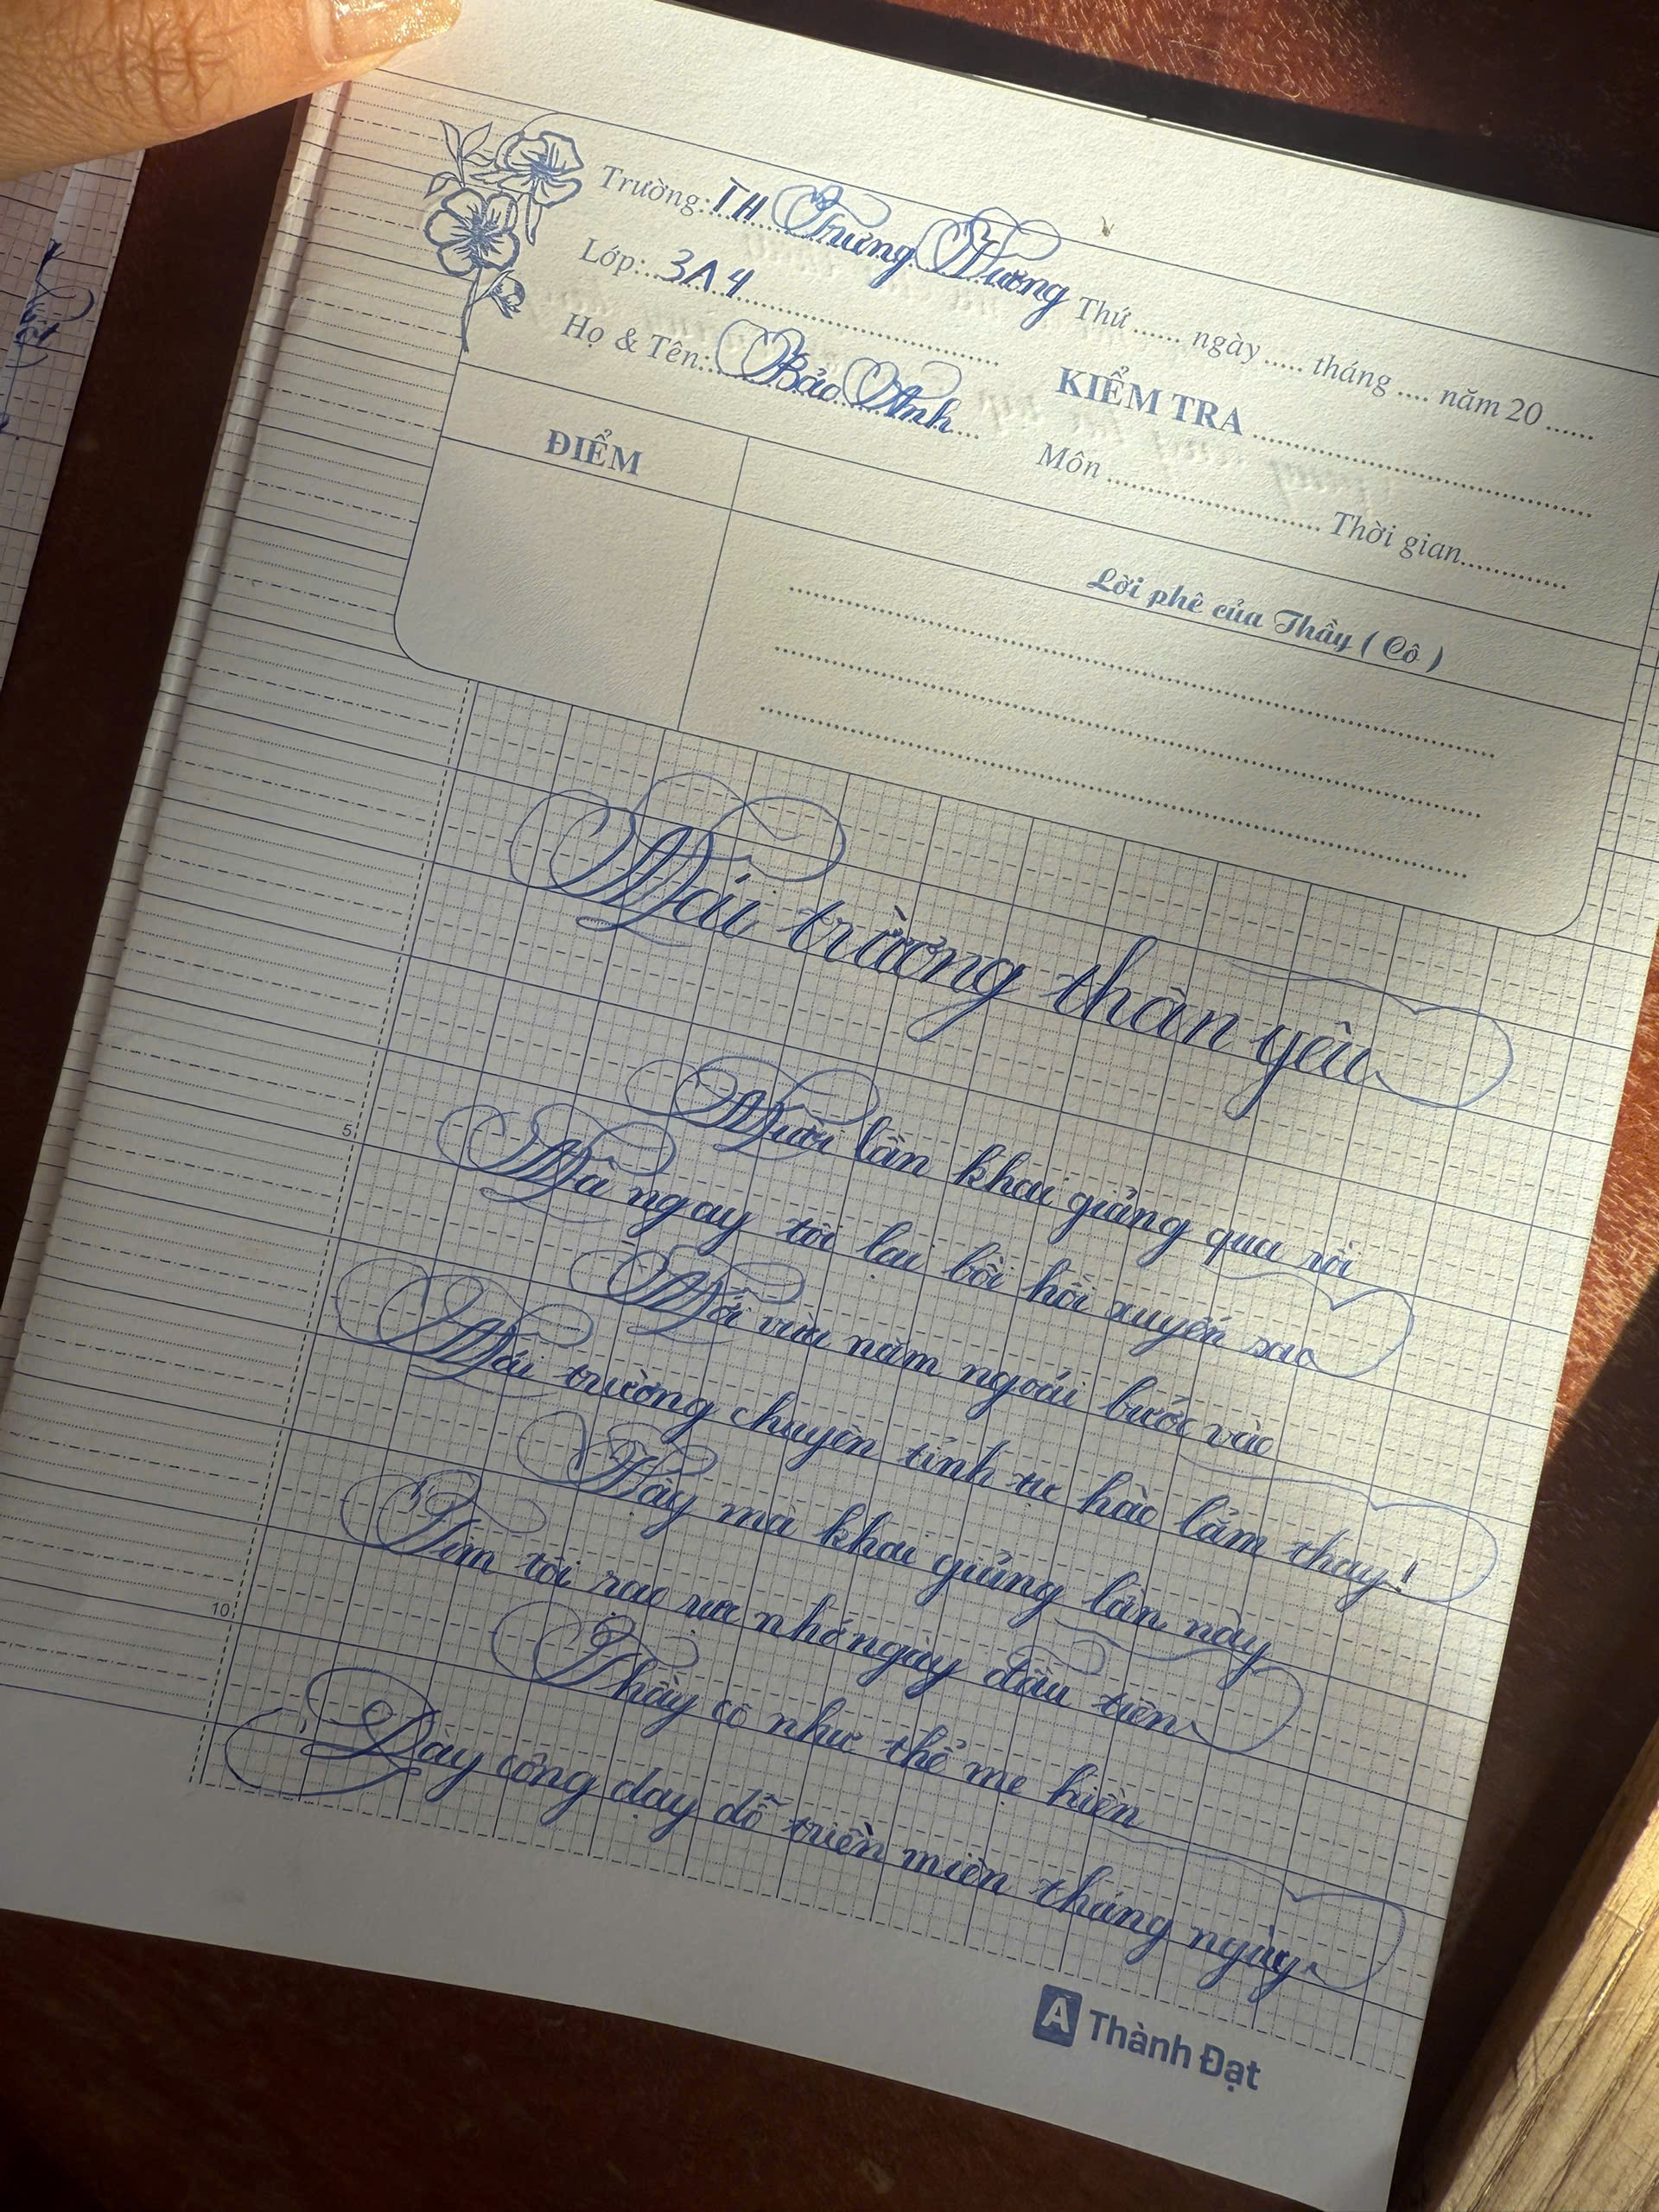 Trường: TH Trưng Vương Thứ ...... ngày ..... tháng .... năm 20 ......
Lớp: 3A4
KIỂM TRA
Họ & Tên: Bảo Anh
Môn Thời gian
ĐIỂM
Lời phê của Thầy ( Cô )
Mái trường thân yêu
Mười lần khai giảng qua rồi
Mà ngay tôi lại bồi hồi xuyến sao
Mới vừa năm ngoái bước vào
Mái trường chuyên tỉnh tự hào lắm thay!
Vậy mà khai giảng lần này
Tim tôi rạo rực nhớ ngày đầu tiên
Thầy cô như thể mẹ hiền
Dày công dạy dỗ triền miên tháng ngày
5
10
A Thành Đạt